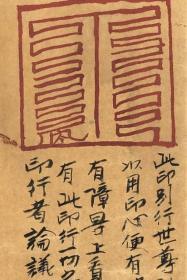 此印別行世尊
以用印心便有
有障㝵上
有此印行
印行者論議